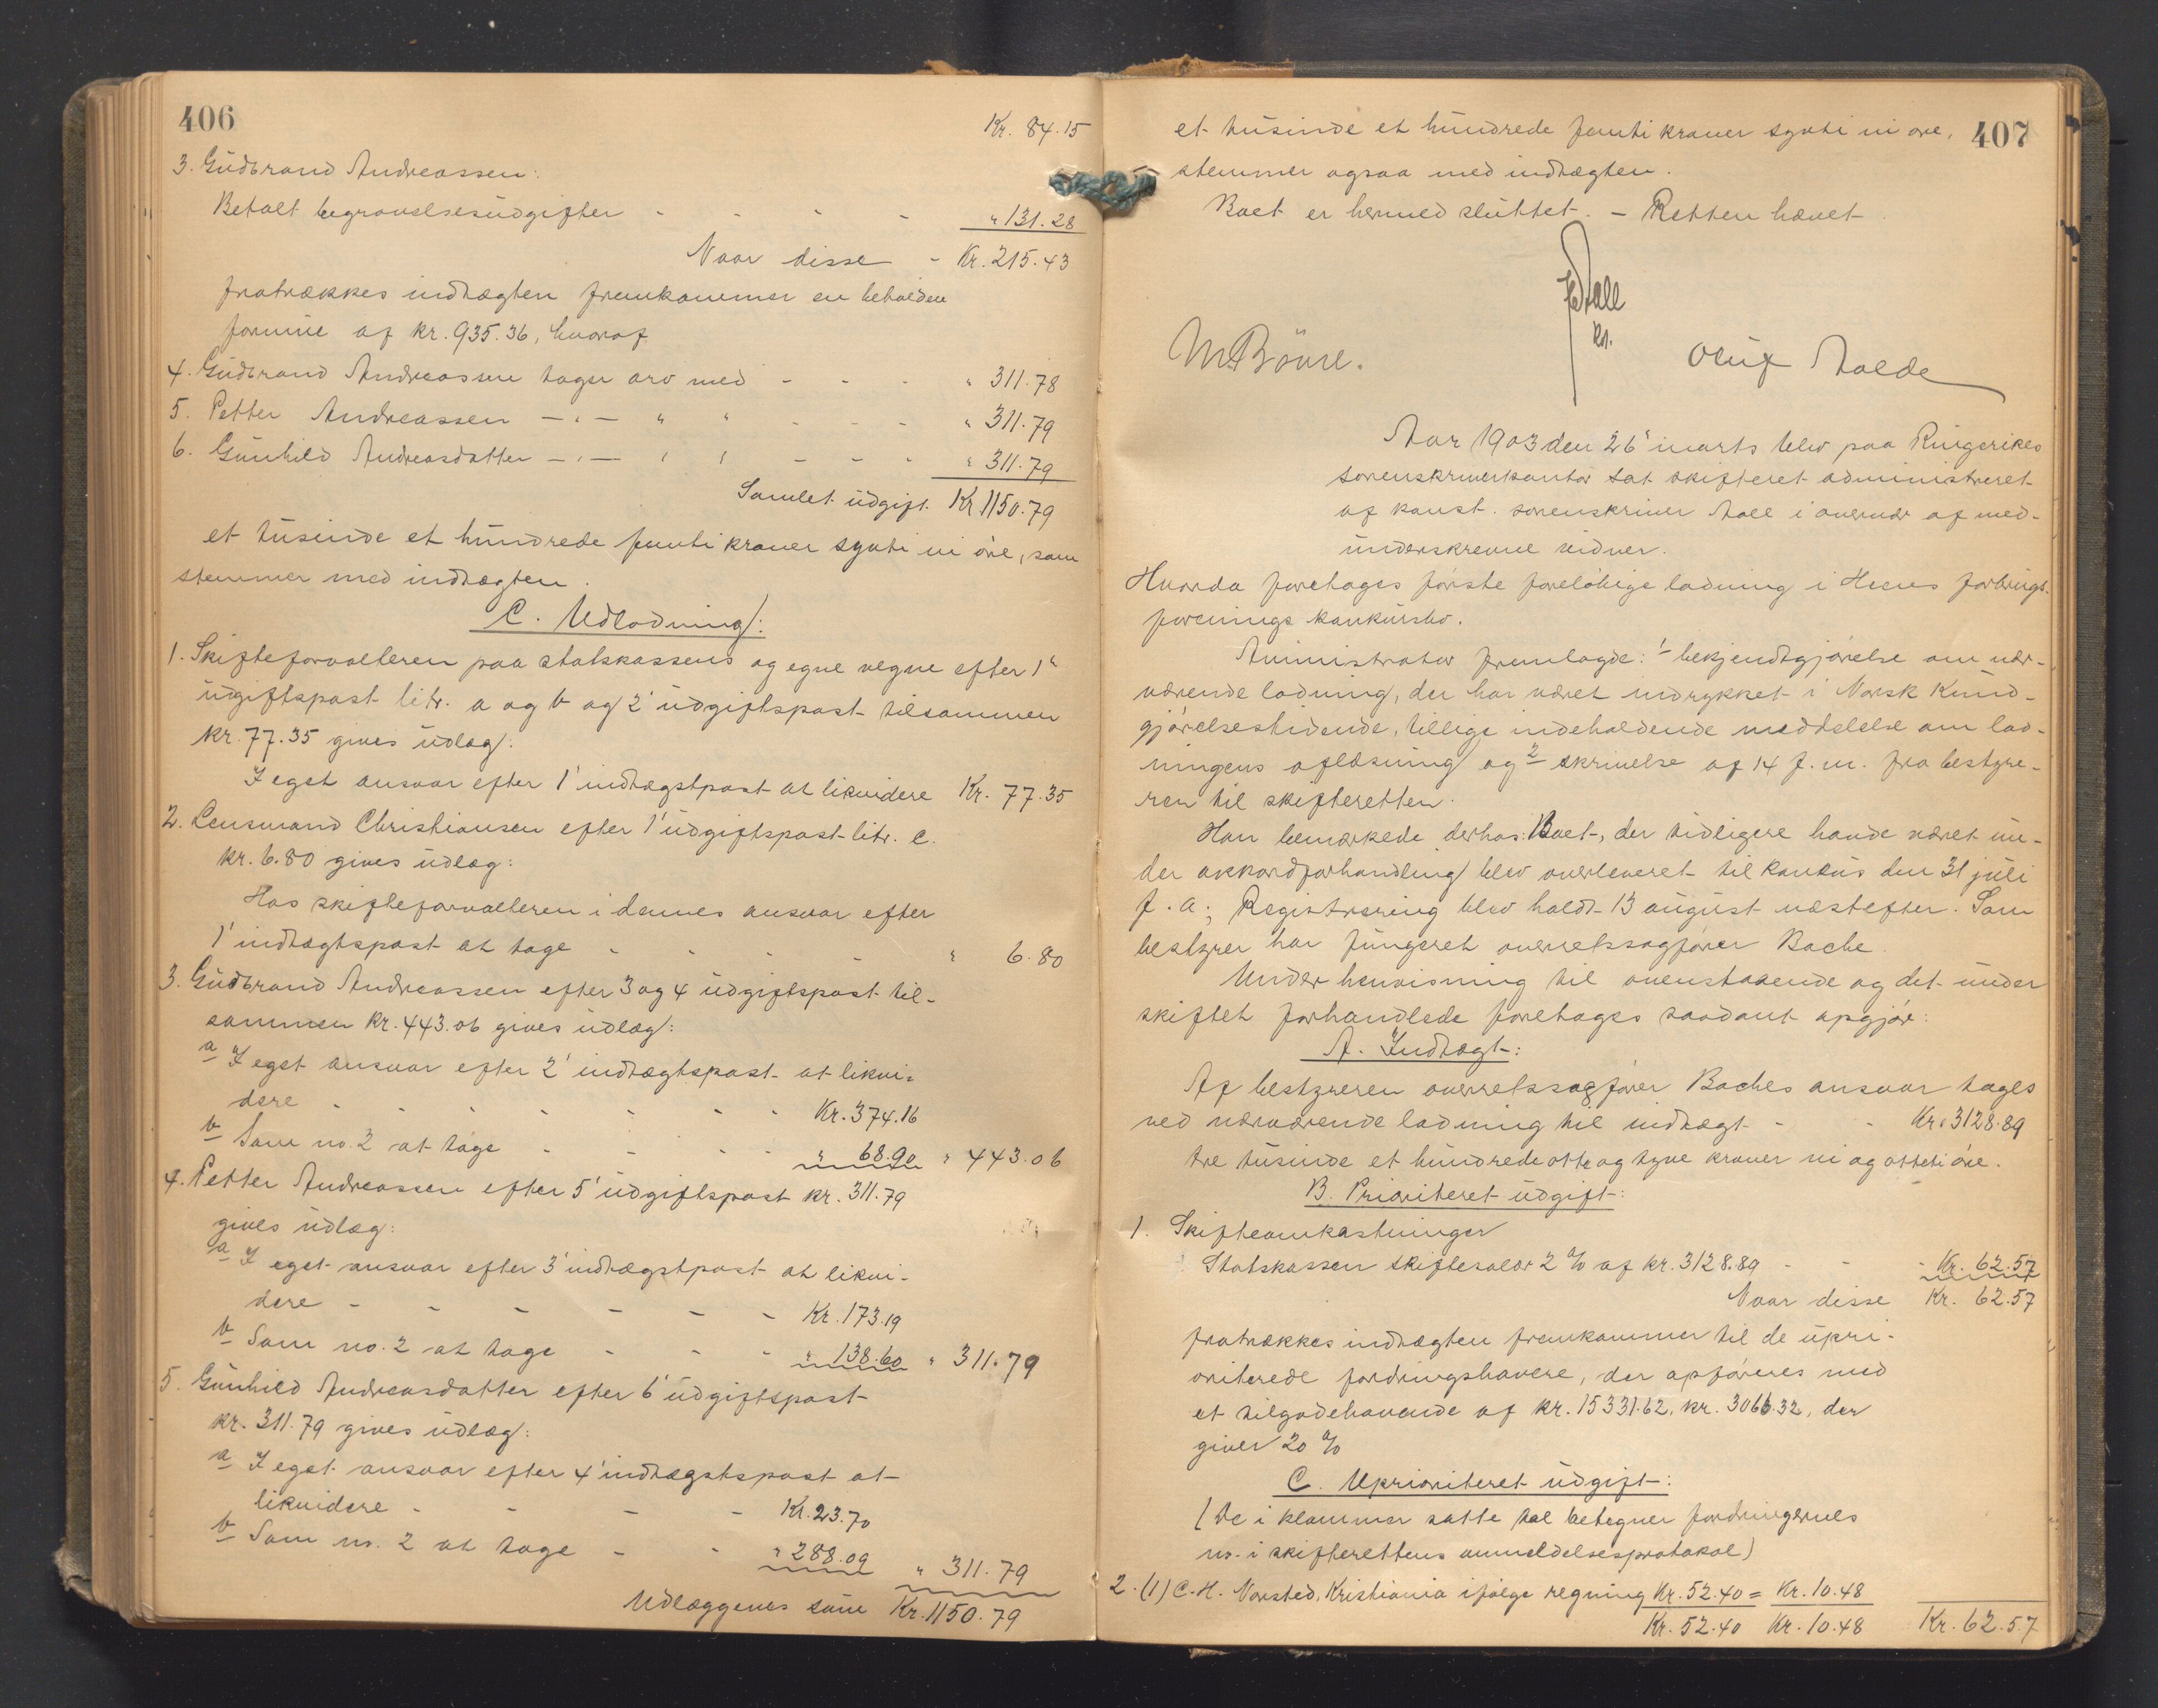 406
Kr. 84.15
3. Gudbrand Andreassen:
Betalt begravelsesudgifter - - - - " 131.28
Naar disse - Kr. 215.43
fratrækkes indtægten fremkommer en beholden
formue af kr. 935.36, hvoraf
4. Gudbrand Andreassen tager arv med - - - " 311.78
5. Petter Andreassen -"- " " - - - " 311.79
6. Gunhild Andreasdatter -"- " " - - - " 311.79
Samlet udgift Kr 1150.79
et tusinde et hundrede femti kroner sytti ni øre, som
stemmer med indtægten.
C. Udlodning:
1. Skifteforvalteren paa statskassens og egne vegne efter 1'
udgiftspost litr. a og b og 2' udgiftspost tilsammen
kr. 77.35 gives udlæg:
I eget ansvar efter 1' indtægtspost at likvidere Kr. 77.35
2. Lensmand Christiansen efter 1' udgiftspost litr. c.
kr. 6.80 gives udlæg:
Hos skifteforvalteren i dennes ansvar efter
1' indtægtspost at tage - - - - " 6.80
3. Gudbrand Andreassen efter 3 og 4 udgiftspost til-
sammen kr. 443.06 gives udlæg:
a I eget ansvar efter 2' indtægtspost at likvi-
dere - - - - - - - Kr. 374.16
b Som no. 2 at tage - - - - " 68.90 " 443.06
4. Petter Andreassen efter 5' udgiftspost kr. 311.79
gives udlæg:
a I eget ansvar efter 3' indtægtspost at likvi-
dere - - - - - - Kr. 173.19
b Som no. 2 at tage - - - " 138.60 " 311.79
5. Gunhild Andreasdatter efter 6' udgiftspost
kr. 311.79 gives udlæg:
a I eget ansvar efter 4' indtægtspost at
likvidere - - - - Kr. 23.70
b Som no. 2 at tage - - " 288.09 " 311.79
Udlæggenes sum Kr. 1150.79
407
et tusinde et hundrede femti kroner sytti ni øre,
stemmer ogsaa med indtægten.
Boet er hermed sluttet. - Retten hævet.
Kst.
Oluf Aalde
Aar 1903 den 26' marts blev paa Ringerikes
sorenskriverkontor sat skifteret administreret
af konst. sorenskriver Aall i overvær af med-
underskrevne vidner.
Hvorda foretages første foreløbige lodning i Heens forbrugs-
forenings konkursbo.
Administrator fremlagde: 1 bekjendtgjørelse om nær-
værende lodning, der har været indrykket i Norsk Kund-
gjørelsestidende, tillige indeholdende meddelelse om lod-
ningens oplæsning og 2 skrivelse af 14 f. m. fra bestyre-
ren til skifteretten.
Han bemærkede derhos: Boet, der tidligere havde været un-
der akkordforhandling blev overleveret til konkurs den 31 juli
f. a.; Registrering blev holdt 13 august næstefter. Som
bestyrer har fungeret overretssagfører Bache.
Under henvisning til ovenstaaende og det under
skiftet forhandlede foretages saadant opgjør:
A. Indtægt:
Af bestyreren overretssagfører Baches ansvar tages
ved nærværende lodning til indtægt - - Kr. 3128.89
tre tusinde et hundrede otte og tyve kroner ni og otteti øre.
B. Prioriteret udgift:
1. Skifteomkostninger
Statskassen skiftesalær 2 % af kr. 3128.89 - - - Kr. 62.57
Naar disse Kr. 62.57
fratrækkes indtægten fremkommer til de upri-
oriterede fordringshavere, der opføreres med
et tilgodehavende af kr. 15331.62, kr. 3066.32, der
giver 20 %
C. Uprioriteret udgift:
(De i klammer satte tal betegner fordringernes
no. i skifterettens anmeldelsesprotokol)
2. (1) C. H. Vorsted, Kristiania ifølge regning Kr. 52.40 = Kr. 10.48
Kr. 52.40 Kr. 10.48 Kr. 62.57